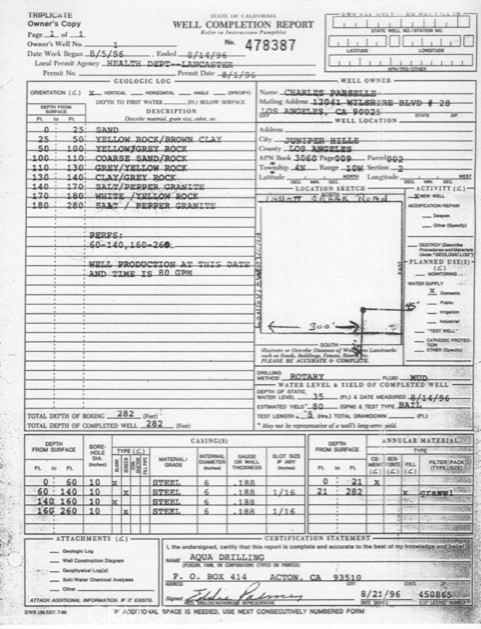 TRIPLICATE
Owner's Copy
STATE OF CALIFORNIA
WELL COMPLETION REPORT
Refer to Instruction Pamphlet
Page 1 of 1
Owner's Well No. 1
No. 478387
STATE WELL NO./STATION NO.
Date Work Began 8/5/96, Ended 8/14/96
LATITUDE LONGITUDE
Local Permit Agency HEALTH DEPT--LANCASTER
Permit No. Permit Date 8/1/96
APN/TRS/OTHER
GEOLOGIC LOG
WELL OWNER
ORIENTATION (∠) X VERTICAL HORIZONTAL ANGLE (SPECIFY)
DEPTH TO FIRST WATER (Ft.) BELOW SURFACE
DEPTH FROM SURFACE
Ft. to Ft.
DESCRIPTION
Describe material, grain size, color, etc.
0 25 SAND
25 50 YELLOW ROCK/BROWN CLAY
50 100 YELLOW/GREY ROCK
100 110 COARSE SAND/ROCK
110 130 GREY/YELLOW ROCK
130 140 CLAY/GREY ROCK
140 170 SALT/PEPPER GRANITE
170 180 WHITE /YELLOW ROCK
180 280 SALT / PEPPER GRANITE
PERFS:
60-140,160-260
WELL PRODUCTION AT THIS DATE
AND TIME IS 80 GPM
TOTAL DEPTH OF BORING 282 (Feet)
TOTAL DEPTH OF COMPLETED WELL 282 (Feet)
Name CHARLES PARSELLS
Mailing Address 12041 WILSHIRE BLVD # 28
LOS ANGELES, CA 90025
CITY STATE ZIP
WELL LOCATION
Address
City JUNIPER HILLS
County LOS ANGELES
APN Book 3060 Page 009 Parcel 002
Township 4N Range 10W Section 2
Latitude NORTH Longitude WEST
DEG. MIN. SEC. DEG. MIN. SEC.
LOCATION SKETCH
ACTIVITY (∠)
X NEW WELL
MODIFICATION/REPAIR
Deepen
Other (Specify)
DESTROY (Describe Procedures and Materials Under "GEOLOGIC LOG")
PLANNED USE(S) (∠)
MONITORING
WATER SUPPLY
X Domestic
Public
Irrigation
Industrial
"TEST WELL"
CATHODIC PROTECTION
OTHER (Specify)
EAST
300'
SOUTH
Illustrate or Describe Distance of Well from Landmarks such as Roads, Buildings, Fences, Rivers, etc.
PLEASE BE ACCURATE & COMPLETE.
DRILLING METHOD ROTARY FLUID MUD
WATER LEVEL & YIELD OF COMPLETED WELL
DEPTH OF STATIC WATER LEVEL 35 (Ft.) & DATE MEASURED 8/14/96
ESTIMATED YIELD* 80 (GPM) & TEST TYPE BAIL
TEST LENGTH (Hrs.) TOTAL DRAWDOWN (Ft.)
* May not be representative of a well's long-term yield.
DEPTH FROM SURFACE BORE-HOLE DIA. (Inches) CASING(S)
TYPE (∠) BLANK SCREEN FILL PIPE
MATERIAL/ GRADE INTERNAL DIAMETER (Inches) GAUGE OR WALL THICKNESS SLOT SIZE IF ANY (Inches)
0 60 10 X STEEL 6 .188
60 140 10 X STEEL 6 .188 1/16
140 160 10 X STEEL 6 .188
160 260 10 X STEEL 6 .188 1/16
DEPTH FROM SURFACE ANNULAR MATERIAL
TYPE
CEMENT BENTONITE FILL FILTER PACK (TYPE/SIZE)
0 21 X
21 282 X gravel
ATTACHMENTS (∠)
Geologic Log
Well Construction Diagram
Geophysical Log(s)
Soil/Water Chemical Analyses
Other
ATTACH ADDITIONAL INFORMATION, IF IT EXISTS.
CERTIFICATION STATEMENT
I, the undersigned, certify that this report is complete and accurate to the best of my knowledge and belief.
NAME AQUA DRILLING
(PERSON, FIRM, OR CORPORATION) (TYPED OR PRINTED)
P. O. BOX 414 ACTON, CA 93510
ADDRESS CITY STATE ZIP
Signed Eddie Palmer
8/21/96 450865
DWR 188 REV. 7-90
IF ADDITIONAL SPACE IS NEEDED, USE NEXT CONSECUTIVELY NUMBERED FORM